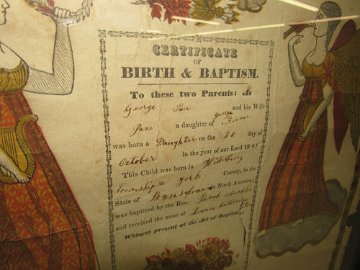 CERTIFICATE
OF
BIRTH & BAPTISM.
To these two Parents: As
George and his Wife
Jane a daughter of George
was born a Daughter on the 20 day of
October in the year of our Lord 1845
This Child was born in
township in York County, in the
State of Pennsylvania North America,
was baptized by the Rev.
and received the name of
Witness present at the Act of Baptism